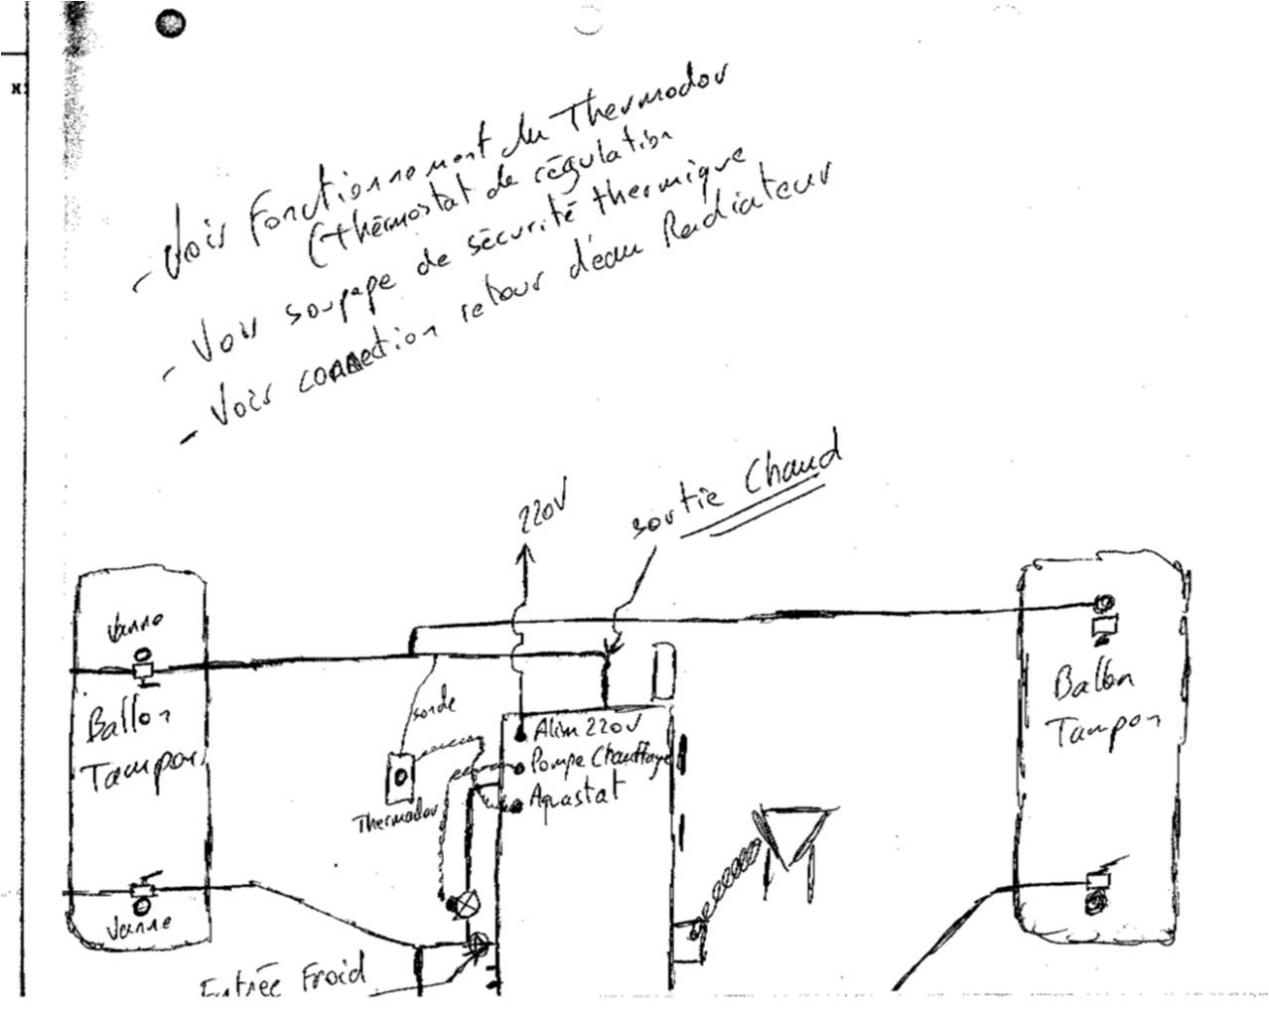 - Voir Fonctionnement du Thermador
(thermostat de régulation
- Voir soupape de sécurité thermique
- Voir connection retour d'eau Radiateur
sortie Chaud
220V
Vanne
Ballon
Tampon
sonde
Thermador
Alim 220V
Pompe Chauffage
Aquastat
Ballon
Tampon
Vanne
Entrée Froid